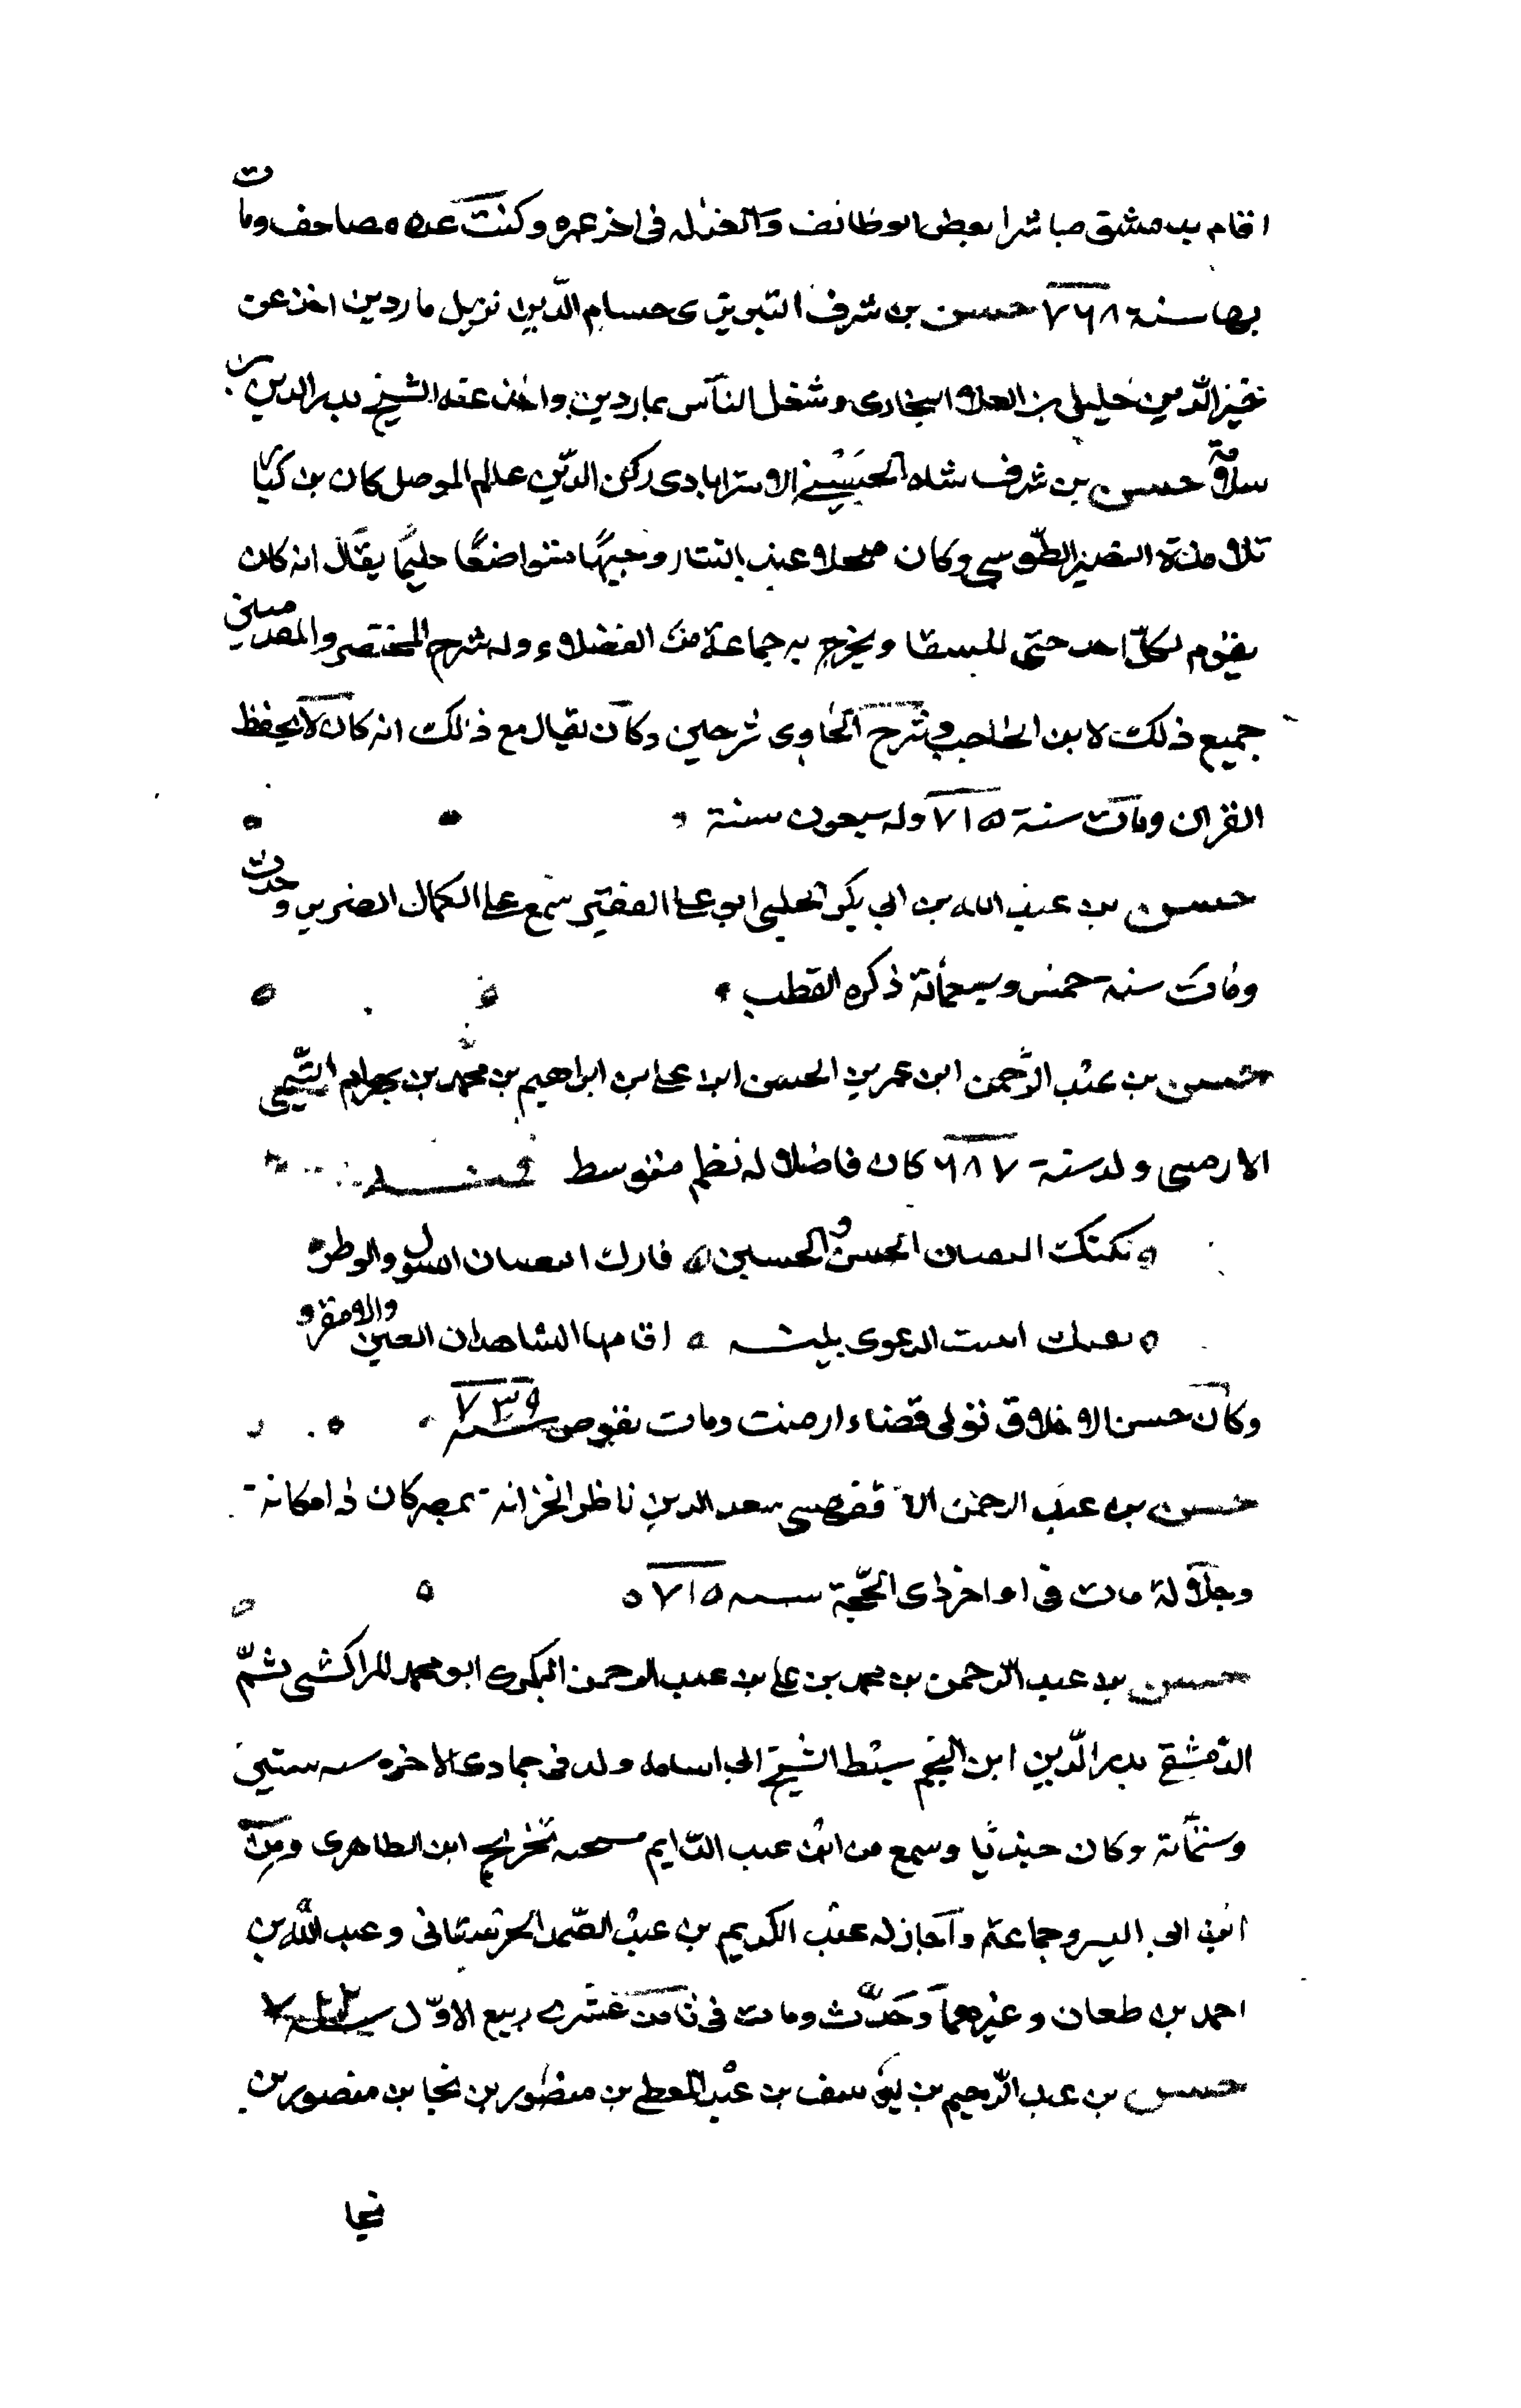 اقام بدمشق مباشرا بعض الوظائف وانعزل فى اخر عمره وكتب عدة مصاحف ومات
بها سنة ٧٦٨ حسن بن شرف التبريزى حسام الدين نزيل ماردين اخذ عن
الدين خليل بن العلاء البخارى وشغل الناس بماردين واخذ عنه الشيخ بدر الدين بن
سلامة حسن بن شرف شاه الحسينى الاسترابادى ركن الدين عالم الموصل كان من كبار
تلامذة النصير الطوسى وكان مبجلا عند التتار وجيها متواضعا حليما يقال انه كان
يقوم لكل احد حتى للسقا وتخرج به جماعة من الفضلاء وله شرح المختصر والمقدمتين
جميع ذلك لابن الحاجب وشرح الحاوى شرحين وكان يقال مع ذلك انه كان لا يحفظ
القران ومات سنة ٧١٥ وله سبعون سنة
حسن بن عبد الله بن ابى بكر الحلبى ابو على الفقير سمع على الكمال الضرير وحدث
ومات سنة خمس وسبعمائة ذكره القطب
حسن بن عبد الرحمن ابن عمر بن الحسن ابن على بن ابراهيم بن محمد بن بهرام التيمى
الارمنتى ولد سنة ٦٨٧ كان فاضلا له نظم متوسط
الحسن والحسين فارك السول والوطر
الدعوى اقامها الشاهدان العين والاثر و
وكان حسن الاخلاق تولى قضاء ارمنت ومات بقوص سنة ٧٣٩
حسن بن عبد الرحمن الاقفهسى سعد الدين ناظر الخزانة بمصر كان ذا مكانة
وجلالة مات فى اواخر ذى الحجة سنة ٧١٥
حسن بن عبد الرحمن بن محمد بن على بن عبد الرحمن البكرى ابو محمد المراكشى ثم
الدمشقى بدر الدين ابن النجم سبط الشيخ ابى اسامة ولد فى جمادى الاخرة سنة ستين
وستمائة وكان جنديا وسمع من ابن عبد الدايم مشيخته تخريج ابن الظاهرى ومن
ابن ابى اليسر وجماعة واجاز له عبد الكريم بن عبد الصمد الحرستانى وعبد الله بن
احمد بن طعان وغيرهما وحدث ومات فى ثامن عشرى ربيع الاول سنة
حسن بن عبد الرحيم بن يوسف بن عبد المعطى بن منصور بن نجا بن منصور بن
نجا